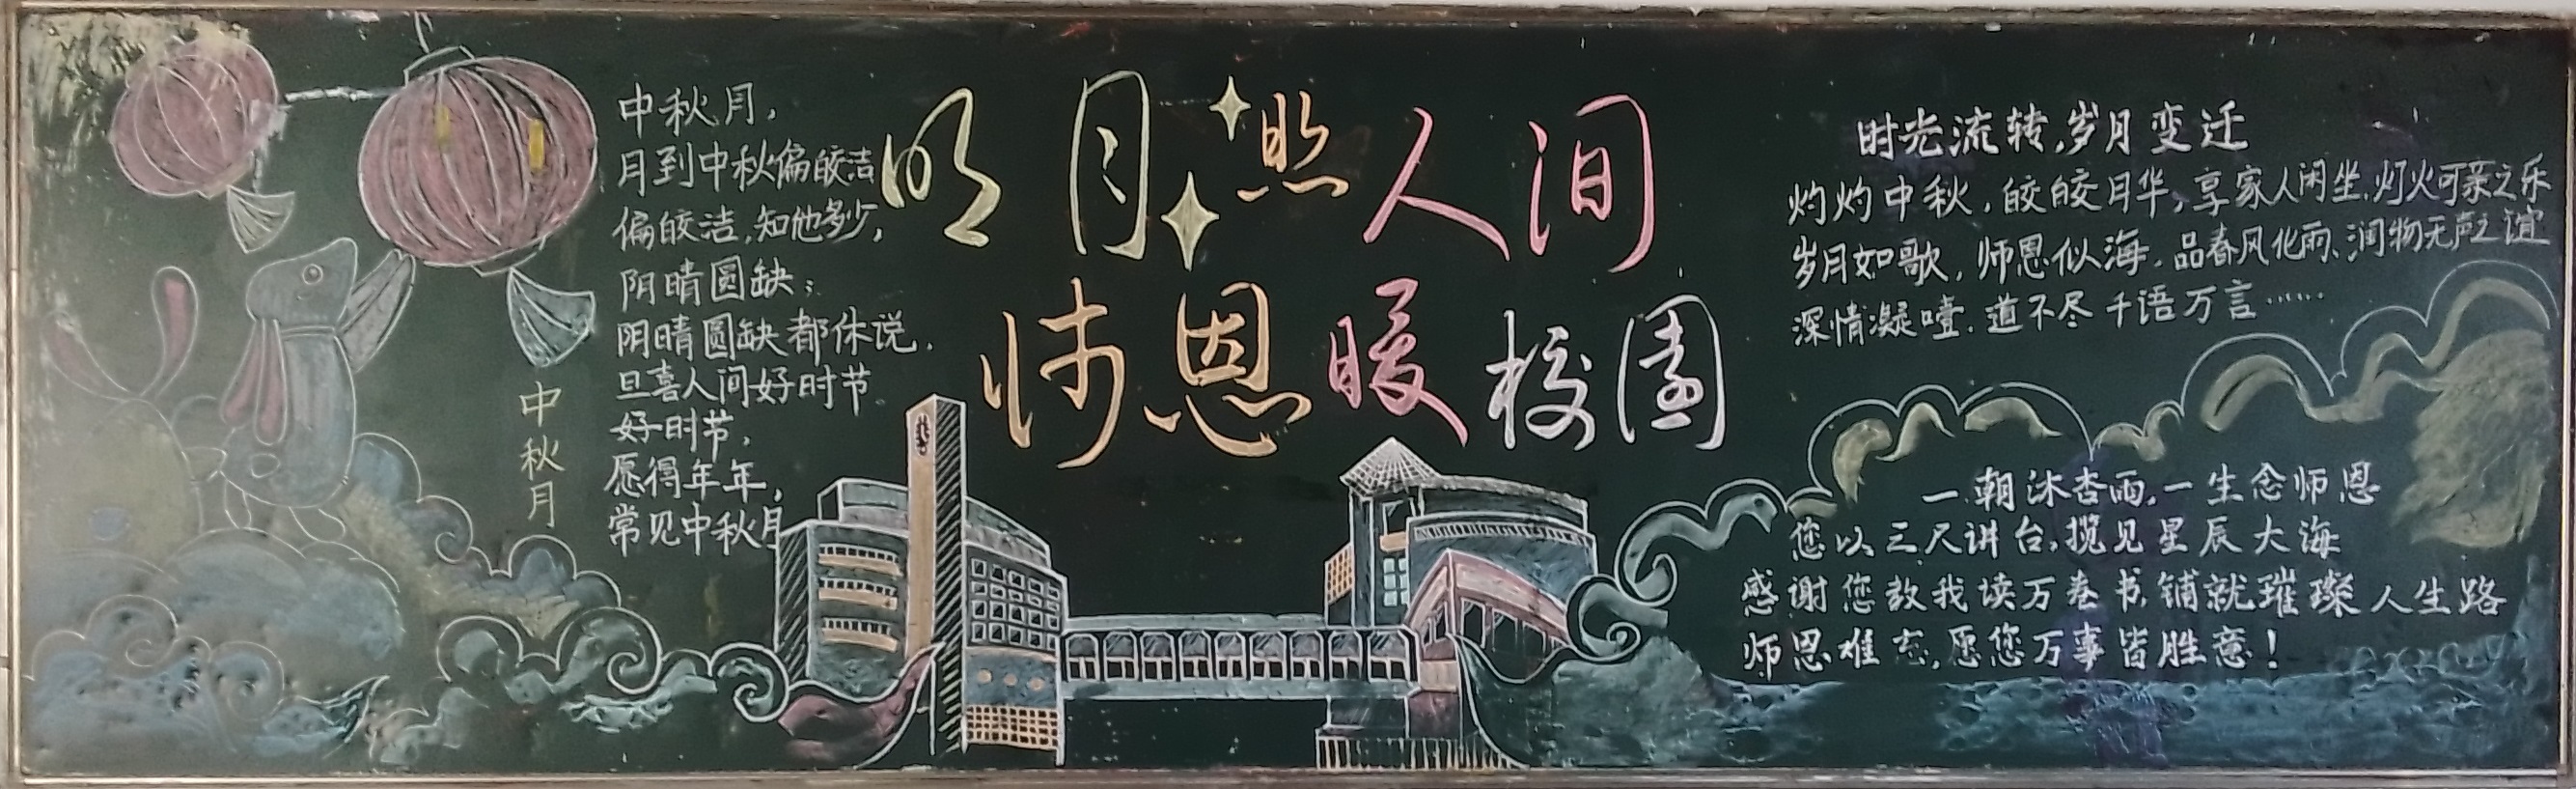 中秋月，
月到中秋偏皎洁
偏皎洁，知他多少，
阴晴圆缺；
阴晴圆缺都休说，
且喜人间好时节。
好时节，
愿得年年，
常见中秋月
中秋月
明月照人间
师恩暖校园
时光流转，岁月变迁
灼灼中秋，皎皎月华，享家人闲坐，灯火可亲之乐
岁月如歌，师恩似海，品春风化雨、润物无声之谊
深情凝噎，道不尽千语万言……
一朝沐杏雨，一生念师恩
您以三尺讲台，揽见星辰大海
感谢您教我读万卷书，铺就璀璨人生路
师恩难忘，愿您万事皆胜意！